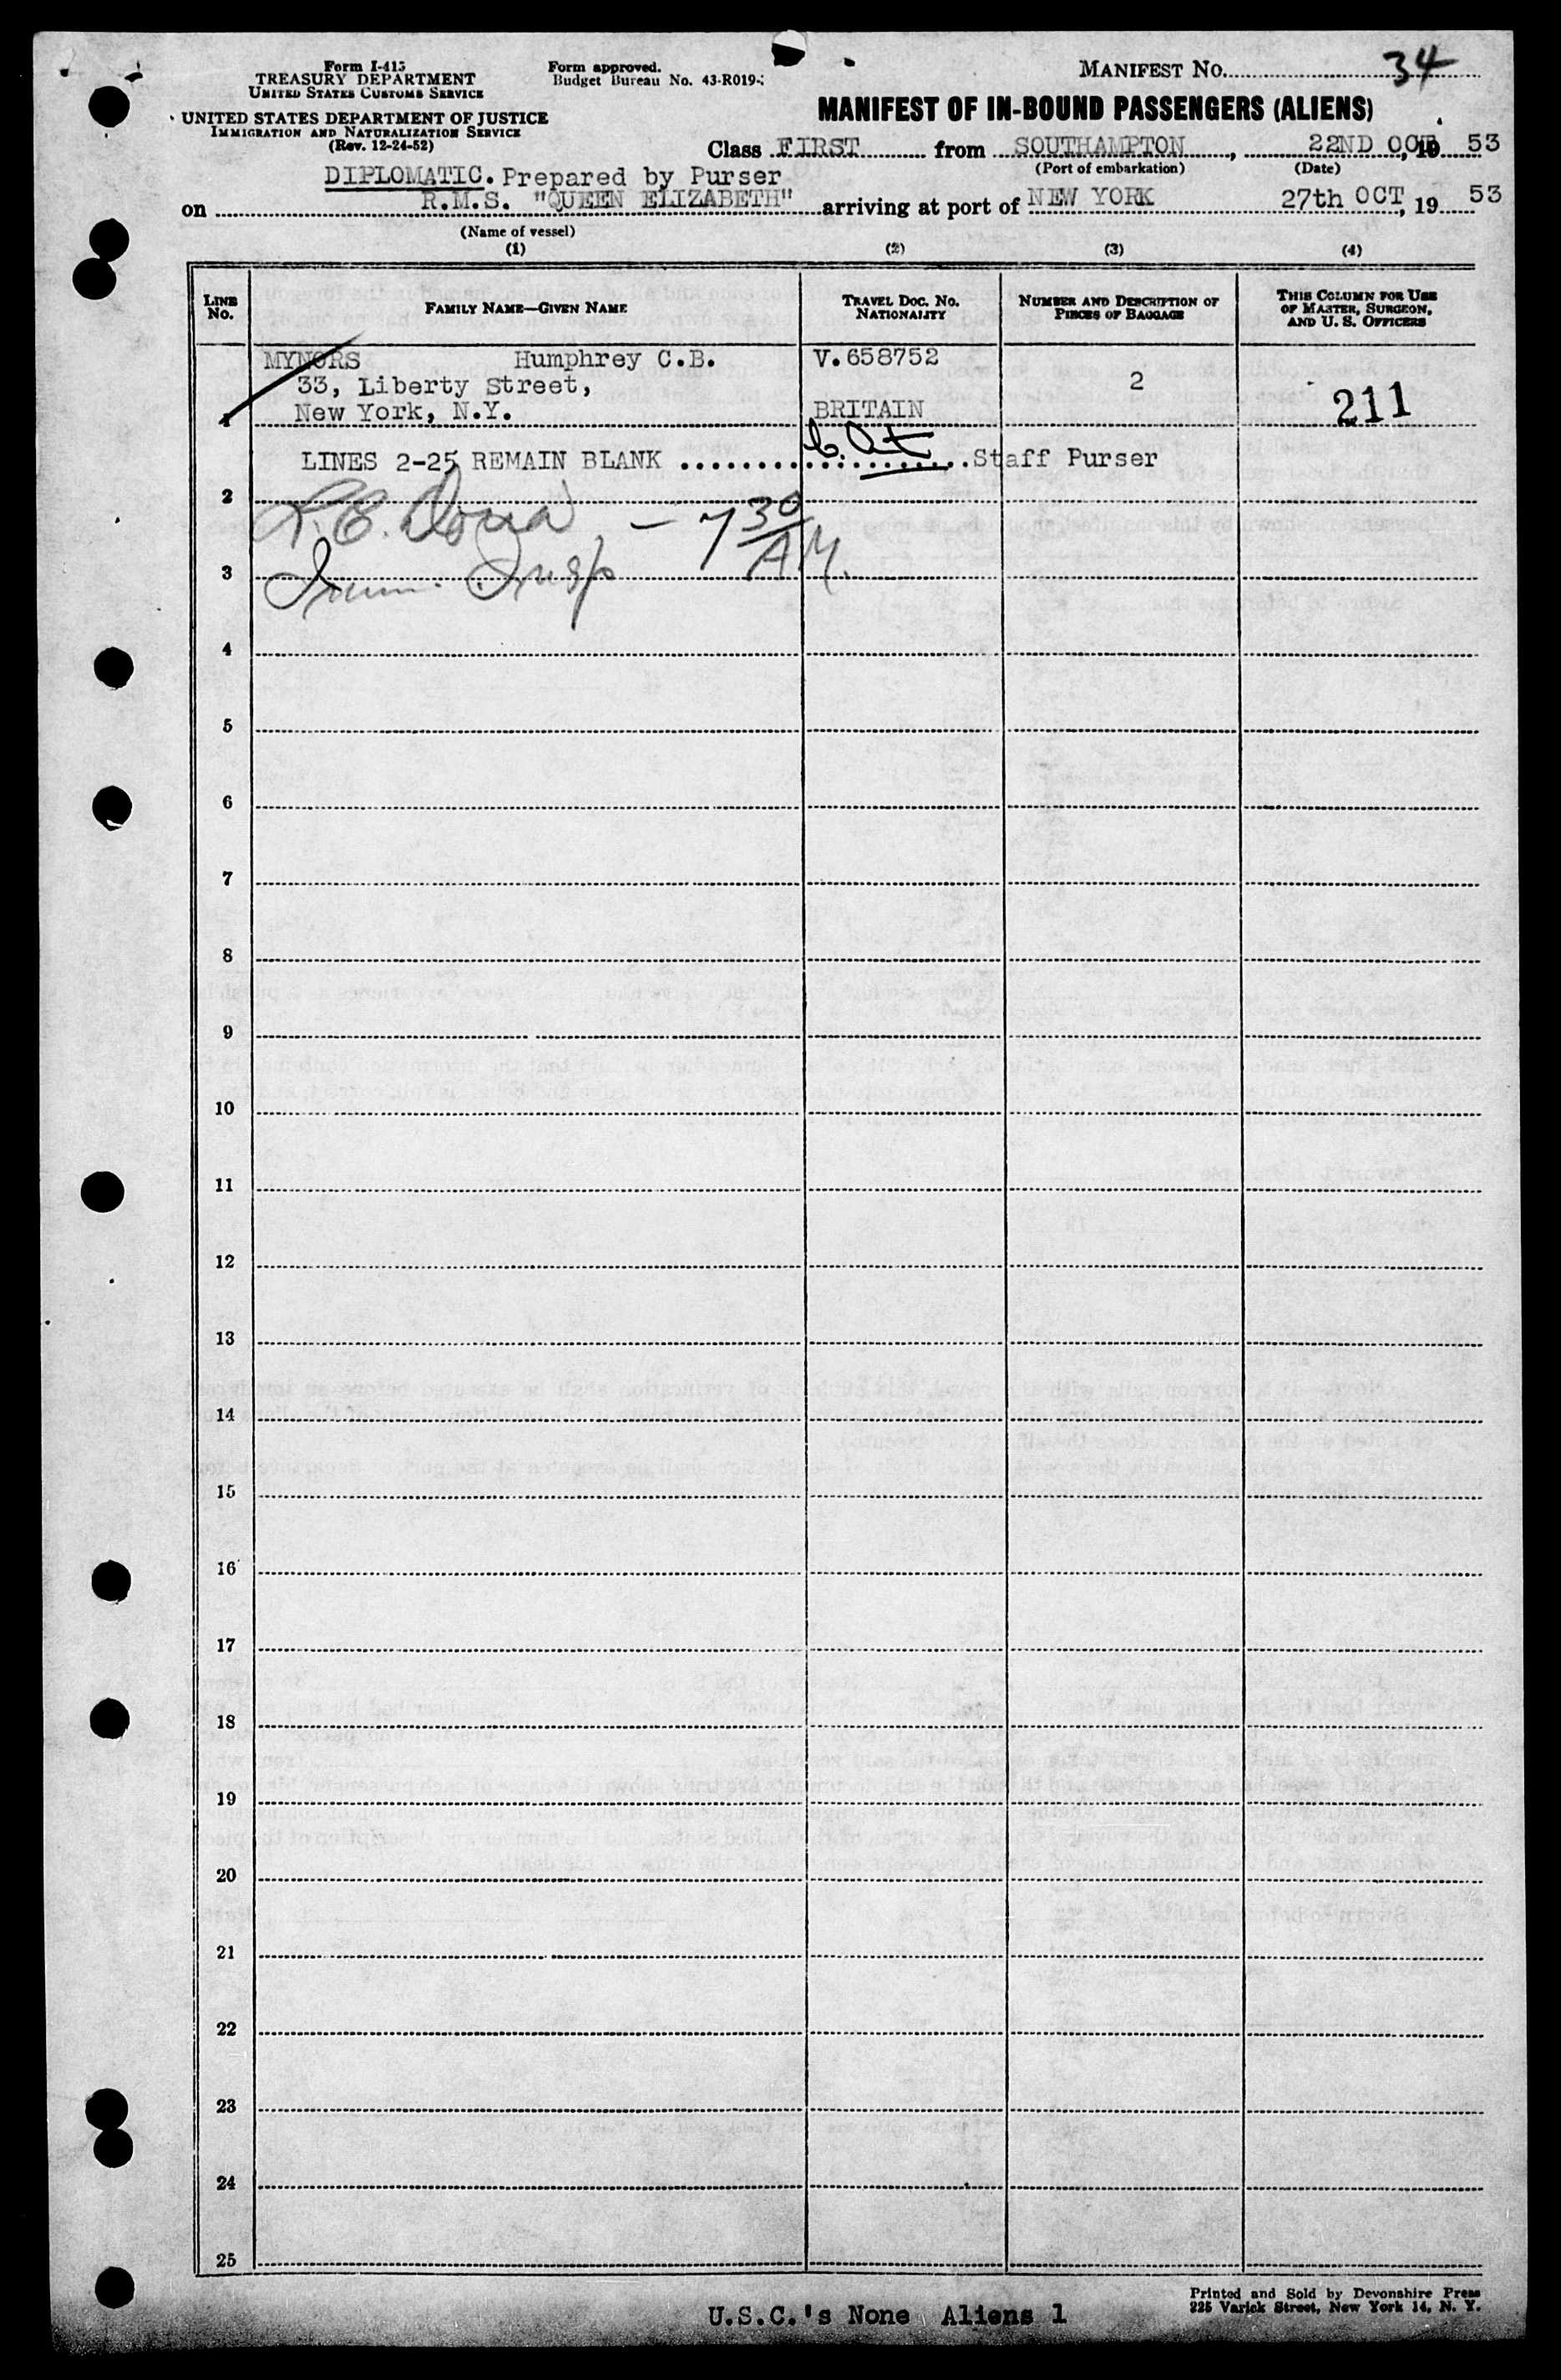 Form I-415
TREASURY DEPARTMENT
UNITED STATES CUSTOMS SERVICE
UNITED STATES DEPARTMENT OF JUSTICE
IMMIGRATION AND NATURALIZATION SERVICE
(Rev. 12-24-52)
Form approved.
Budget Bureau No. 43-R019-
MANIFEST NO. 34
MANIFEST OF IN-BOUND PASSENGERS (ALIENS)
Class FIRST from SOUTHAMPTON, 22ND OCT, 19 53
(Port of embarkation) (Date)
DIPLOMATIC. Prepared by Purser
on R.M.S. "QUEEN ELIZABETH" arriving at port of NEW YORK 27th OCT, 19 53
(Name of vessel)
(1) (2) (3) (4)
LINE NO.
FAMILY NAME—GIVEN NAME
TRAVEL DOC. NO. NATIONALITY
NUMBER AND DESCRIPTION OF PIECES OF BAGGAGE
THIS COLUMN FOR USE OF MASTER, SURGEON, AND U. S. OFFICERS
MYNORS Humphrey C.B. V.658752
33, Liberty Street, 2
1 New York, N.Y. BRITAIN 211
LINES 2-25 REMAIN BLANK ................... Staff Purser
2
- 7 30 AM.
3
Imm. Insp
4
5
6
7
8
9
10
11
12
13
14
15
16
17
18
19
20
21
22
23
24
25
U.S.C.'s None Aliens 1
Printed and Sold by Devonshire Press
225 Varick Street, New York 14, N. Y.